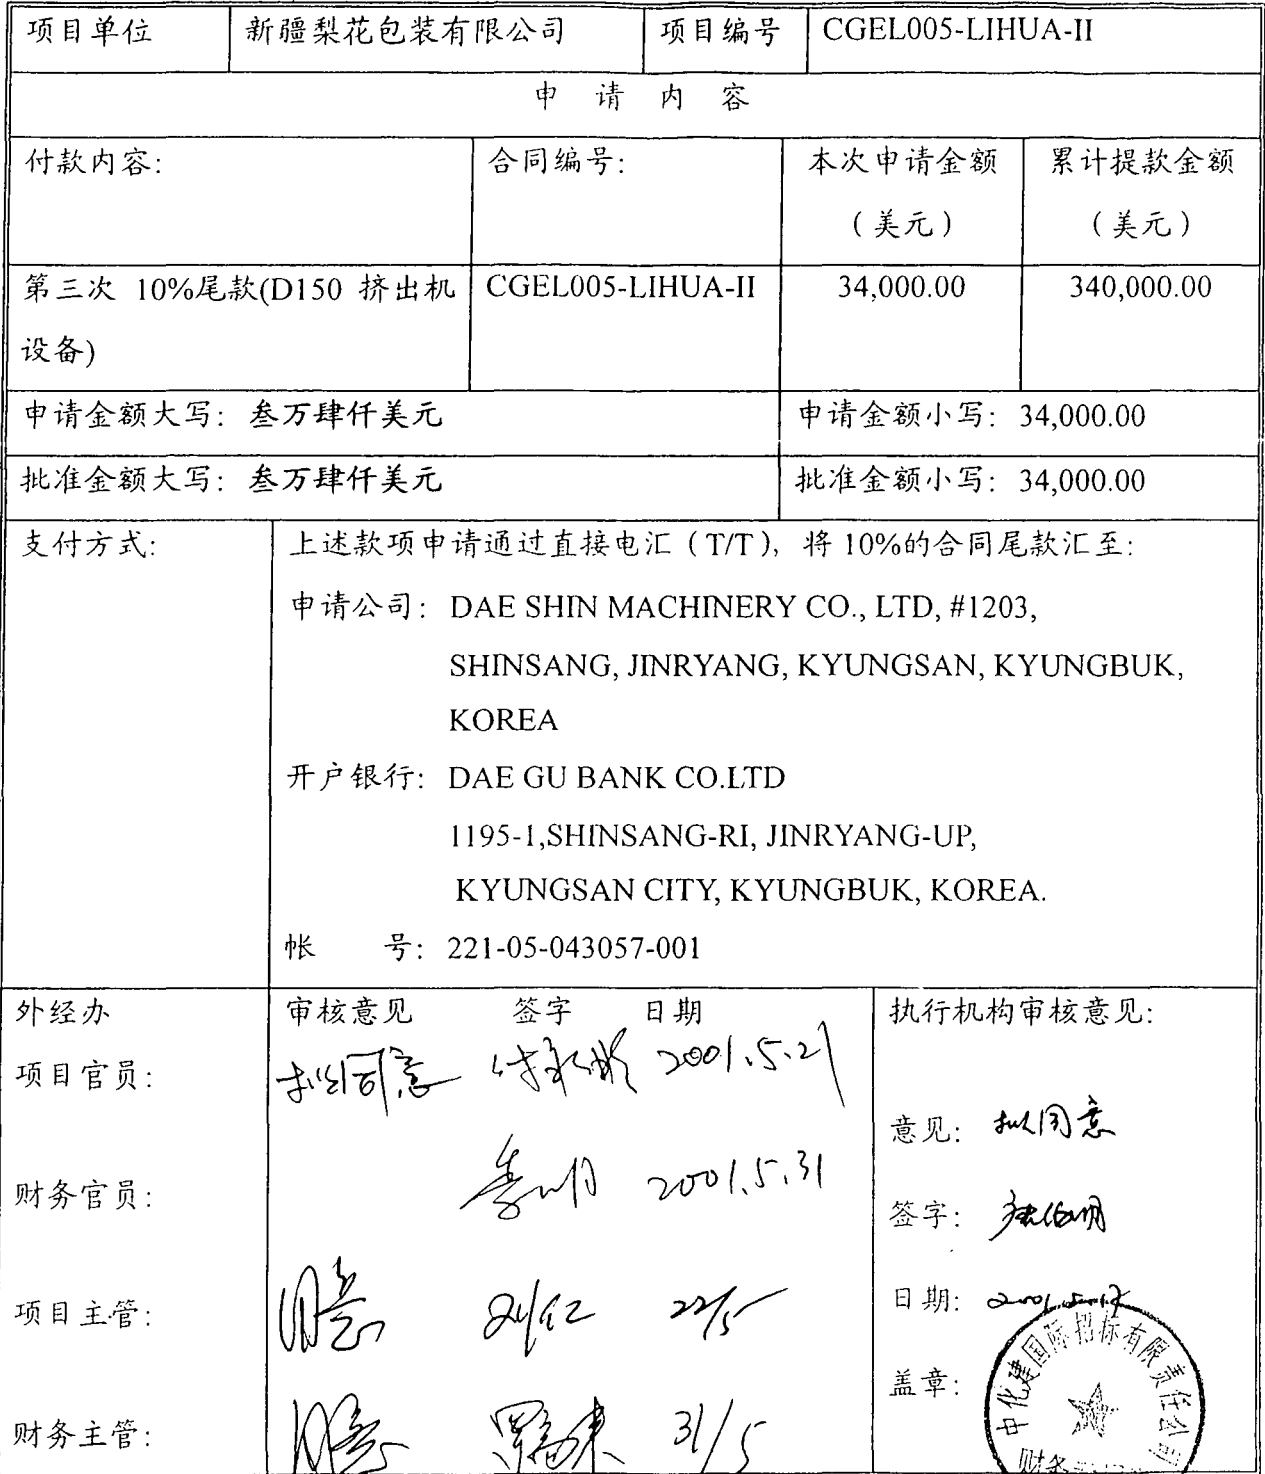 项目单位 新疆梨花包装有限公司 项目编号 CGEL005-LIHUA-II
申 请 内 容
付款内容: 合同编号: 本次申请金额 累计提款金额
（美元） （美元）
第三次 10%尾款(D150 挤出机 CGEL005-LIHUA-II 34,000.00 340,000.00
设备)
申请金额大写: 叁万肆仟美元 申请金额小写: 34,000.00
批准金额大写: 叁万肆仟美元 批准金额小写: 34,000.00
支付方式: 上述款项申请通过直接电汇（T/T），将 10%的合同尾款汇至:
申请公司: DAE SHIN MACHINERY CO., LTD, #1203,
SHINSANG, JINRYANG, KYUNGSAN, KYUNGBUK,
KOREA
开户银行: DAE GU BANK CO.LTD
1195-1,SHINSANG-RI, JINRYANG-UP,
KYUNGSAN CITY, KYUNGBUK, KOREA.
帐 号: 221-05-043057-001
外经办 审核意见 签字 日期 执行机构审核意见:
项目官员: 拟同意 2001.5.21
意见: 拟同意
财务官员: 2001.5.31
签字:
项目主管: 同意 刘仁 22/5
日期: 2001.5.17
盖章:
中化建国际招标有限责任公司
财务主管: 同意 31/5
财务